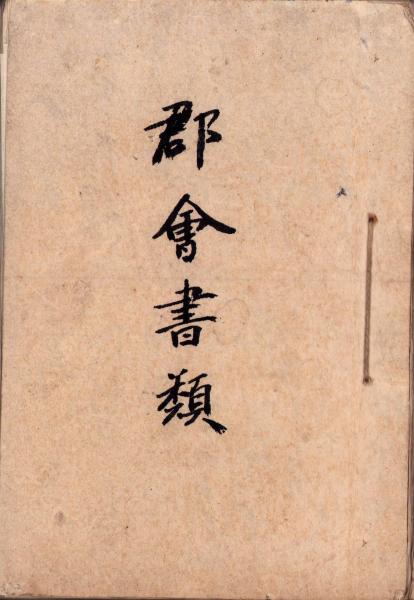 郡會書類